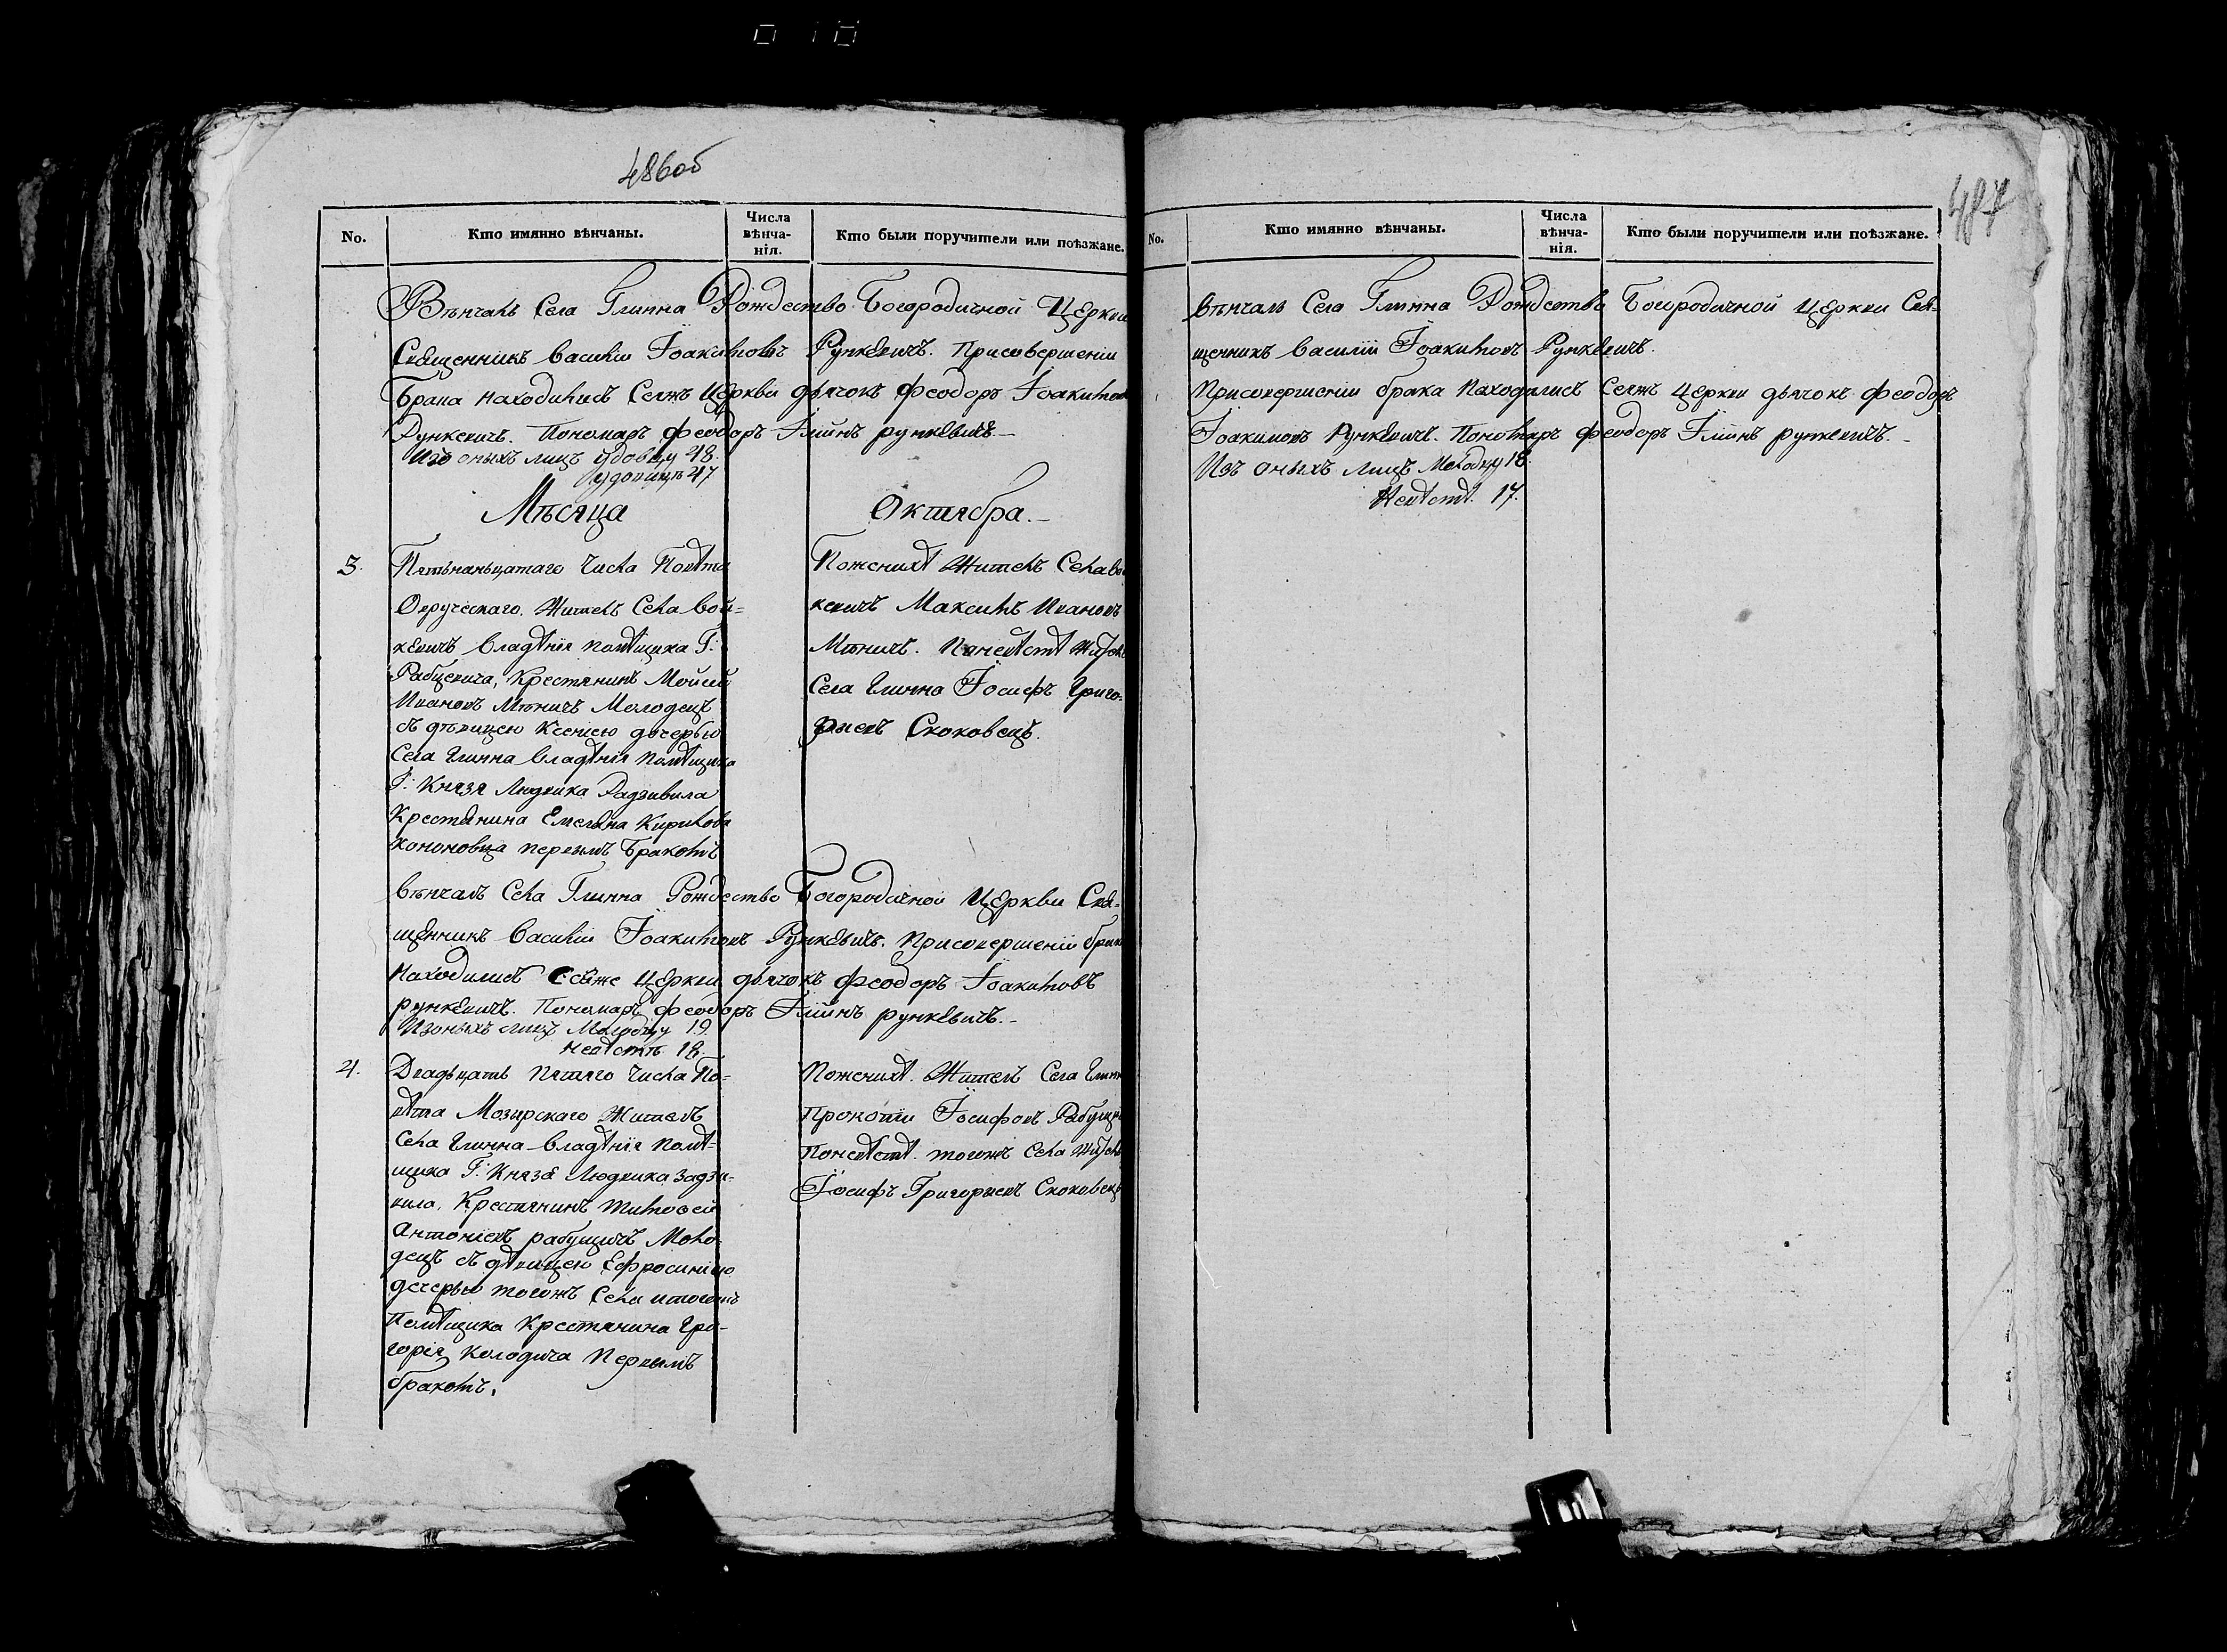 486об
No.
Кто имянно вѣнчаны.
Числа вѣнча-нія.
Кто были поручители или поѣзжане.
Вѣнчалъ Села Глинна Рождество Богородичной Церкви
Священникъ Василій Іоакимовъ Рункевичъ. Присовершеніи
Брака находились Сеяжъ Церкви дьячокъ Феодоръ Іоакимовъ
Рункевичъ. Пономарь Феодоръ Іліинъ рункевичъ.
Изо оныхъ лицъ удовцу 48.
удовицѣ 47
Мѣсяца Октября.
3.
Пятьнаньцатаго Числа Повѣта
Овручскаго. Житель Села Вой=
кевичъ Владѣнія помѣщика Г:
Рабцевича, Крестянинъ Мойсей
Ивановъ Мѣничъ Молодецъ
съ дѣвицею Ксеніею дочерью
Села Глинна Владѣнія помѣщика
Г: Князя Людвика Радзивила
Крестянина Емеляна Кирилова
Кононовца первымъ Бракомъ
Поженихѣ Житель Села Вой
кевичъ Максимъ Ивановъ
Мѣничъ. Поневѣстѣ Житель
Села Глинна Іосифъ Григо-
рыевъ Скоковецъ.
Вѣнчалъ Села Глинна Рождество Богородичной Церкви Свя-
щенникъ Василій Іоакимовъ Рункевичъ. Присовершеніи брака
Находились Сеяже Церкви дьячокъ Феодоръ Іоакимовъ
рункевичъ. Пономарь Феодоръ Іліинъ рункевичъ.
Изоныхъ лицъ Молодцу 19.
невѣстѣ 18.
4.
Двадьцать пятаго Числа По-
вѣта Мозырскаго Житель
Села Глинна Владѣнія помѣ-
щика Г: Князя Людвика Радзи-
вила, Крестянинъ Тимофей
Антоніевъ рабущичъ Моло-
децъ съ дѣвицею Ефросиніею
дочерью тогожъ Села итогожъ
Помѣщика Крестянина Гри-
горія Колодича Первымъ
бракомъ.
Поженихѣ. Житель Села Глинн
Прокопій Іосифовъ Рабущи
Поневѣстѣ. тогожъ Села Житель
Іосифъ Григорыевъ Скоковецъ
487
No.
Кто имянно вѣнчаны.
Числа вѣнча-нія.
Кто были поручители или поѣзжане.
Вѣнчалъ Села Глинна Рождества Богородичной Церкви Свя-
щенникъ Василій Іоакимовъ Рункевичъ.
Присовершеніи брака Находились Сеяжъ Церкви дьячокъ Феодоръ
Іоакимовъ Рункевичъ. Пономарь Феодоръ Іліинъ рункевичъ.
Изъ оныхъ лицъ Молодцу 18.
Невѣстѣ. 17.